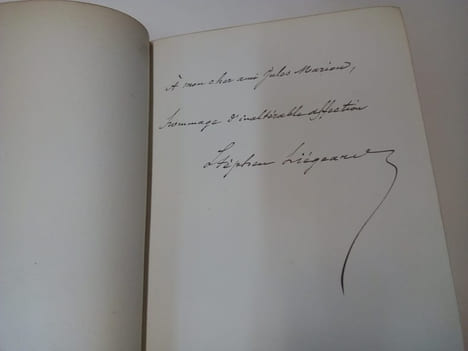 À mon cher ami Jules Marion,
hommage d'inaltérable affection
Stéphen Liégeard